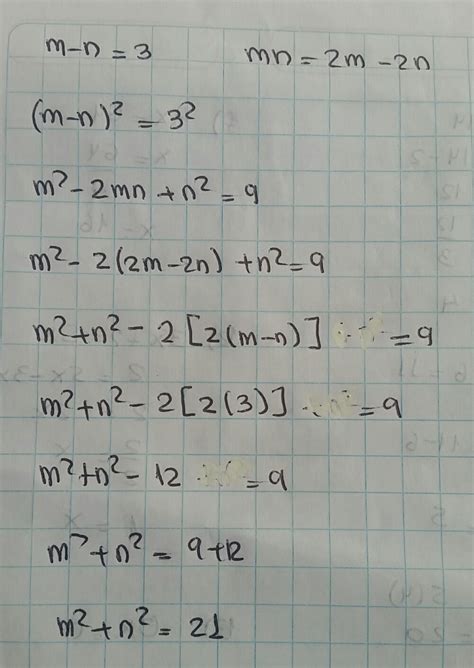 m-n = 3    mn = 2m - 2n
(m-n)² = 3²
m² - 2mn + n² = 9
m² - 2(2m-2n) + n² = 9
m² + n² - 2[2(m-n)] = 9
m² + n² - 2[2(3)] = 9
m² + n² - 12 = 9
m² + n² = 9+12
m² + n² = 21